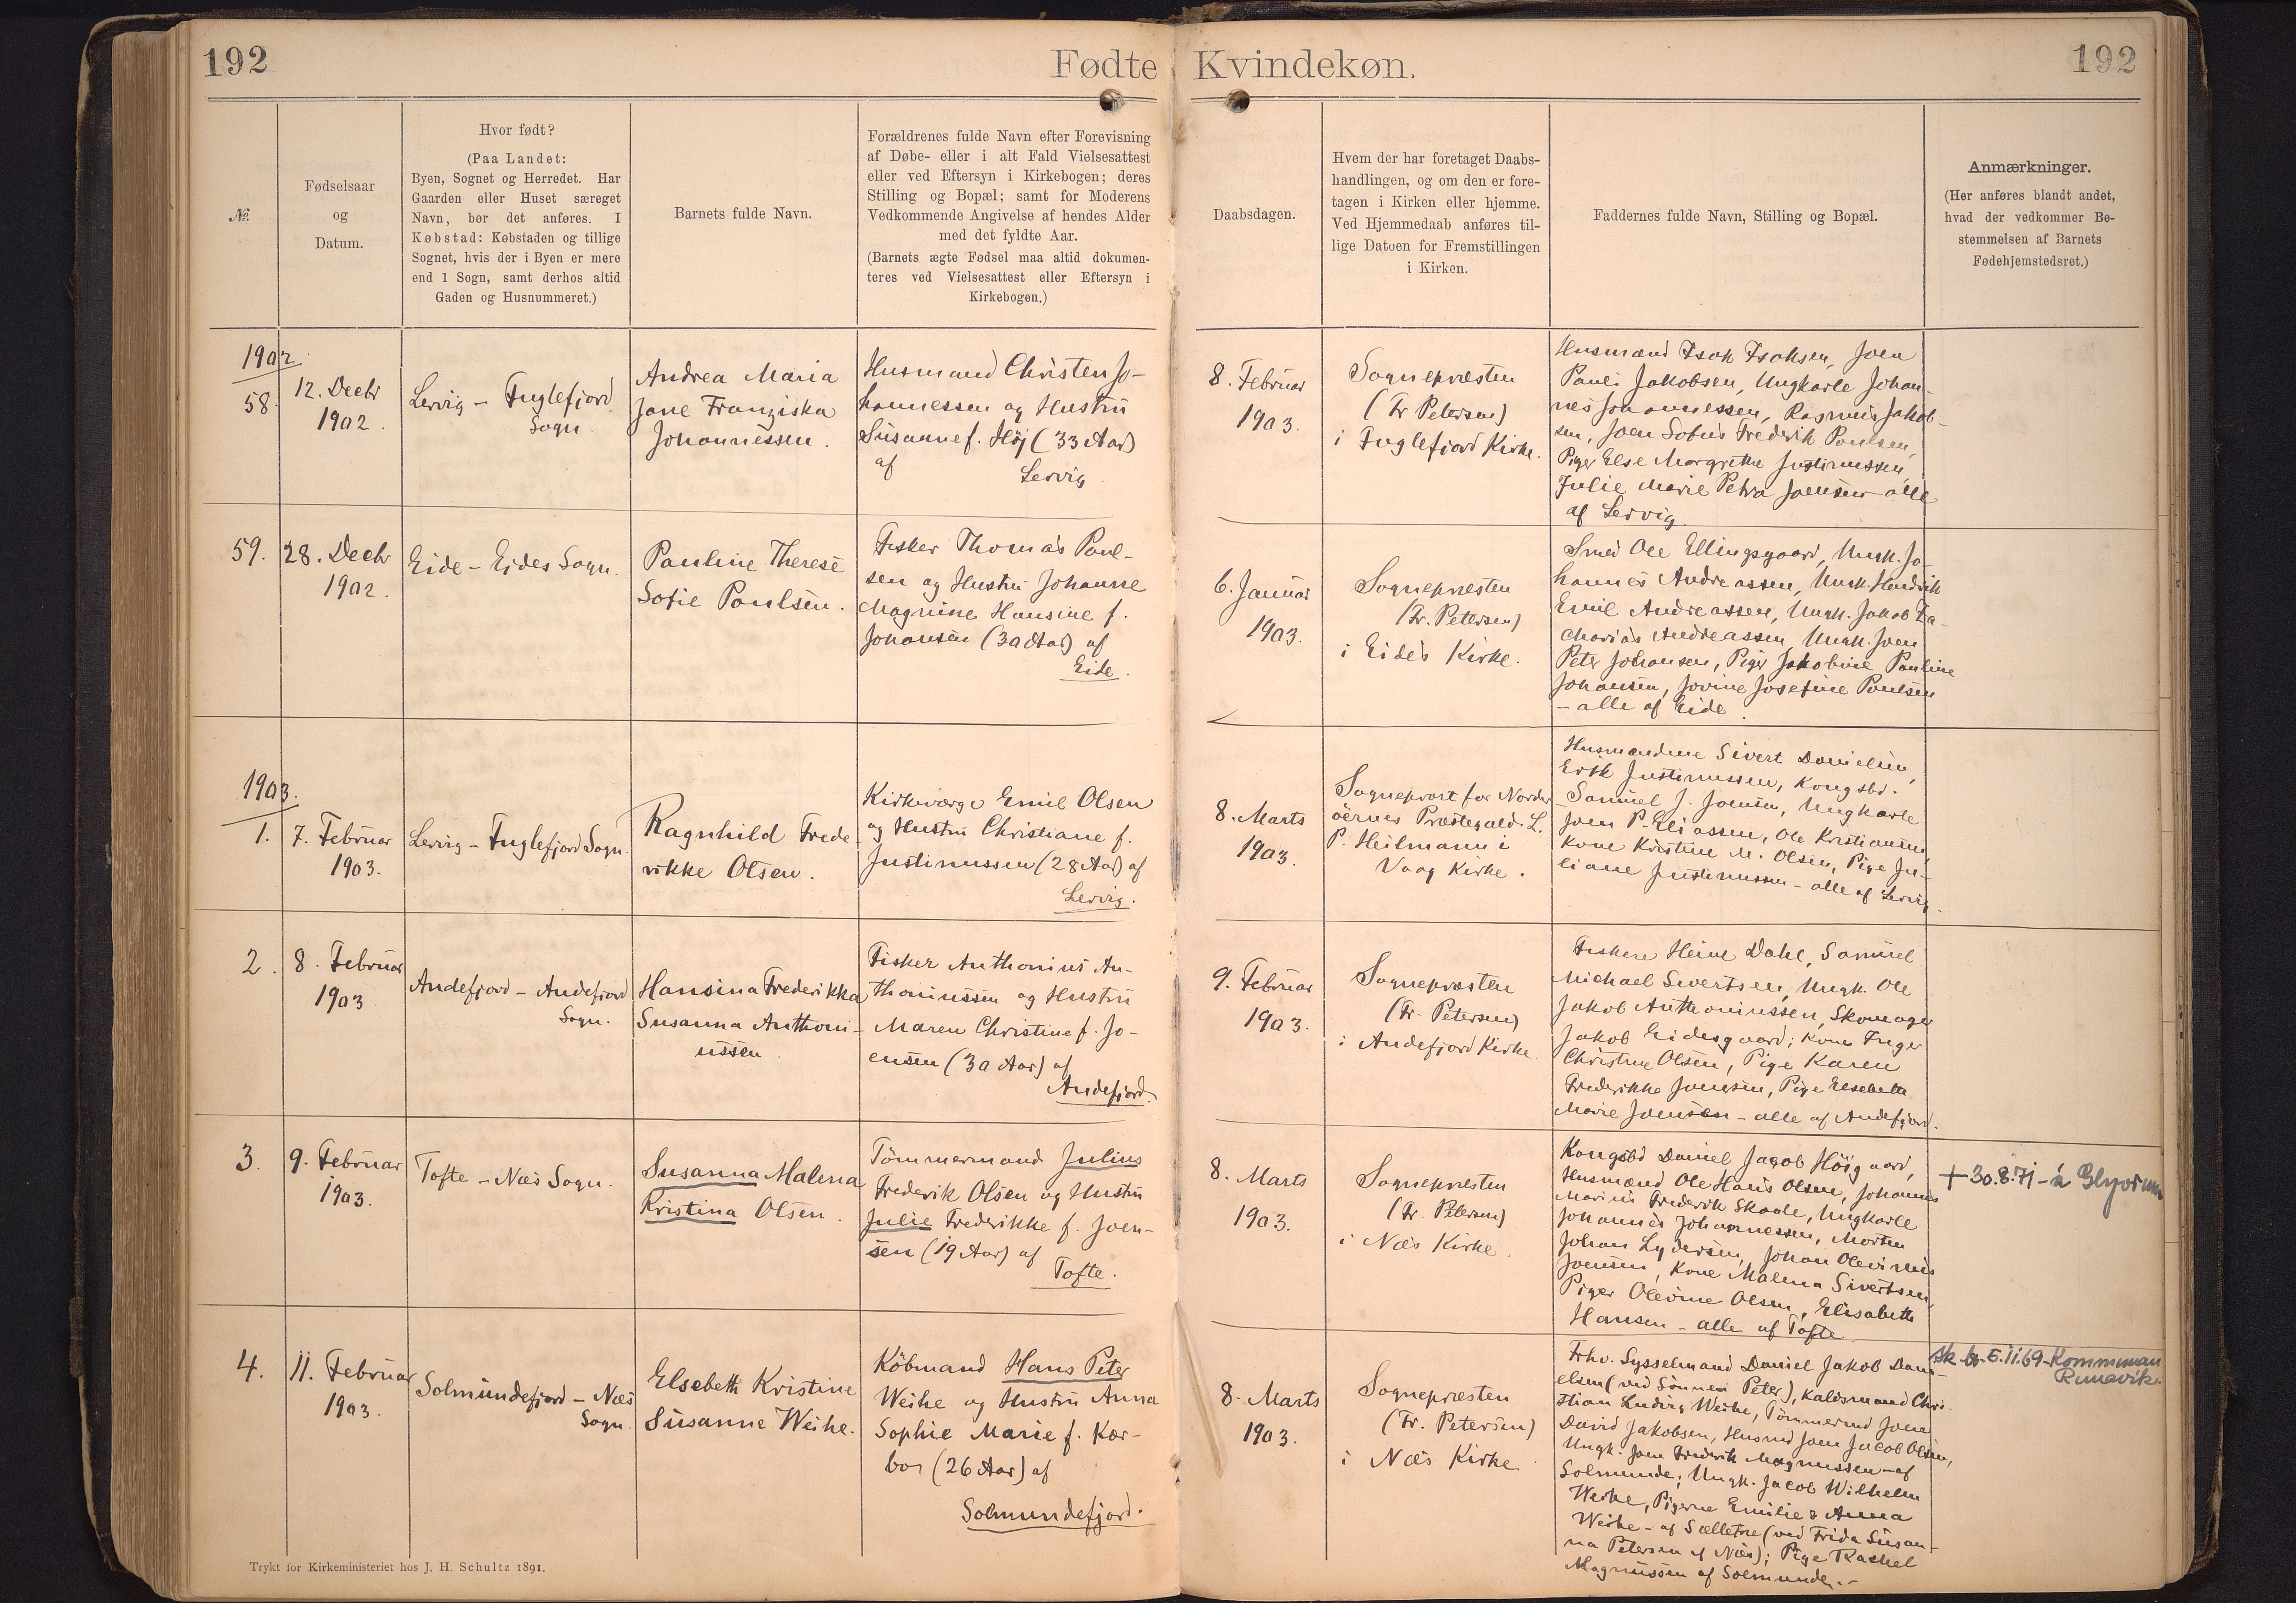 192
Fødte
Kvindekøn.
192
№
Fødselsaar
og
Datum.
Hvor født?
(Paa Landet:
Byen, Sognet og Herredet. Har
Gaarden eller Huset særeget
Navn, bør det anføres. I
Købstad: Købstaden og tillige
Sognet, hvis der i Byen er mere
end 1 Sogn, samt derhos altid
Gaden og Husnummeret.)
Barnets fulde Navn.
Forældrenes fulde Navn efter Forevisning
af Døbe- eller i alt Fald Vielsesattest
eller ved Eftersyn i Kirkebogen; deres
Stilling og Bopæl; samt for Moderens
Vedkommende Angivelse af hendes Alder
med det fyldte Aar.
(Barnets ægte Fødsel maa altid dokumen-
teres ved Vielsesattest eller Eftersyn i
Kirkebogen.)
Daabsdagen.
Hvem der har foretaget Daabs-
handlingen, og om den er fore-
tagen i Kirken eller hjemme.
Ved Hjemmedaab anføres til-
lige Datoen for Fremstillingen
i Kirken.
Faddernes fulde Navn, Stilling og Bopæl.
Anmærkninger.
(Her anføres blandt andet,
hvad der vedkommer Be-
stemmelsen af Barnets
Fødehjemstedsret.)
1902
58.
12. Decbr
1902.
Lervig - Fuglefjord
Sogn
Andrea Maria
Jane Franziska
Johannessen.
Husmand Christen Jo-
hannessen og Hustru
Susanne f. Höj (33 Aar)
af
Lervig
8. Februar
1903.
Sognepræsten
(Fr Petersen)
i Fuglefjord Kirke.
Husmænd Isak Isaksen, Joen
Pauli Jakobsen, Ungkarle Johan-
nes Johannessen, Rasmus Jakob-
sen, Joen Sofus Frederik Poulsen,
Piger Else Margrethe Justinussen
Julie Marie Petra Joensen - alle
af Lervig
59.
28. Decbr
1902.
Eide - Eides Sogn.
Pauline Therese
Sofie Poulsen.
Fisker Thomas Poul-
sen og Hustru Johanne
Magnine Hansine f.
Johansen (30 Aar) af
Eide.
6. Januar
1903.
Sognepræsten
(Fr. Petersen)
i Eides Kirke.
Smed Ole Ellingsgaard, Ungk. Jo-
hannes Andreassen, Ungk. Hendrik
Emil Andreassen, Ungk. Jakob Za-
charias Andreassen, Ungk. Joen
Peter Johansen, Piger Jakobine Pauline
Johansen, Jovine Josefine Poulsen
- alle af Eide.
1903.
1.
7. Februar
1903.
Lervig - Fuglefjord Sogn.
Ragnhild Frede-
rikke Olsen.
Kirkeværge Emil Olsen
og Hustru Christiane f.
Justinussen (28 Aar) af
Lervig.
8. Marts
1903.
Sognepræst for Norder-
öernes Præstegæld L.
P. Heilmann i
Vaag Kirke.
Husmændene Sivert Danielsen,
Erik Justinussen, Kongsbd.
Samuel J. Joensen, Ungkarle
Joen P. Eliassen, Ole Kristiansen,
Kone Kristine M. Olsen, Pige Ju-
liane Justinussen - alle af Lervig.
2.
8. Februar
1903
Andefjord - Andefjord
Sogn.
Hansina Frederikka
Susanna Anthoni-
ussen
Fisker Anthonius An-
thoniussen og Hustru
Maren Christine f. Jo-
ensen (30 Aar) af
Andefjord.
9. Februar
1903.
Sognepræsten
(Fr. Petersen)
i Andefjord Kirke.
Fiskere Heine Dahl, Samuel
Michael Sivertsen, Ungk. Ole
Jakob Anthoniussen, Skomager
Jakob Eidesgaard; Kone Inger
Christine Olsen, Pige Karen
Frederikke Joensen, Pige Elsebeth
Marie Joensen - alle af Andefjord.
3.
9. Februar
1903.
Tofte - Næs Sogn.
Susanna Malena
Kristina Olsen.
Tömmermand Julius
Frederik Olsen og Hustru
Julie Frederikke f. Joen-
sen (19 Aar) af
Tofte.
8. Marts
1903.
Sognepræsten
(Fr. Petersen)
i Næs Kirke
Kongsbd Daniel Jacob Höjgaard,
Husmænd Ole Hans Olsen, Johannes
Marius Frederik Skaale, Ungkarle
Johannes Johannessen, Morten
Johan Lydersen, Johan Olevinus
Joensen, Kone Malena Sivertsen,
Piger Olevine Olsen, Elisabeth
Hansen - alle af Tofte
+ 30.8.71 - á Glyvrum
4.
11. Februar
1903.
Solmundefjord - Næs
Sogn.
Elsebeth Kristine
Susanne Weihe.
Köbmand Hans Peter
Weihe og Hustru Anna
Sophie Marie f. Kær-
bor (26 Aar) af
Solmundefjord.
8. Marts
1903.
Sognepræsten
(Fr. Petersen)
i Næs Kirke
Frhv. Sysselmand Daniel Jakob Dani-
elsen (ved Sönnen Peter), Chri-
stian Ludvig Weihe, Tömmermd Joen
David Jakobsen, Husmd Joen Jacob Olsen,
Ungk. Joen Frederik Magnussen - af
Solmunde; Ungk. Jacob Wilhelm
Weihe, Pigerne Emilie & Anna
Weihe - af Selletræ (ved Frida Susan-
na Petersen af Næs); Pige Rachel
Magnussen af Solmunde. -
sk. br. 5.11.69 - Kommunan
Runavik.
Trykt for Kirkeministeriet hos J. H. Schultz 1891.